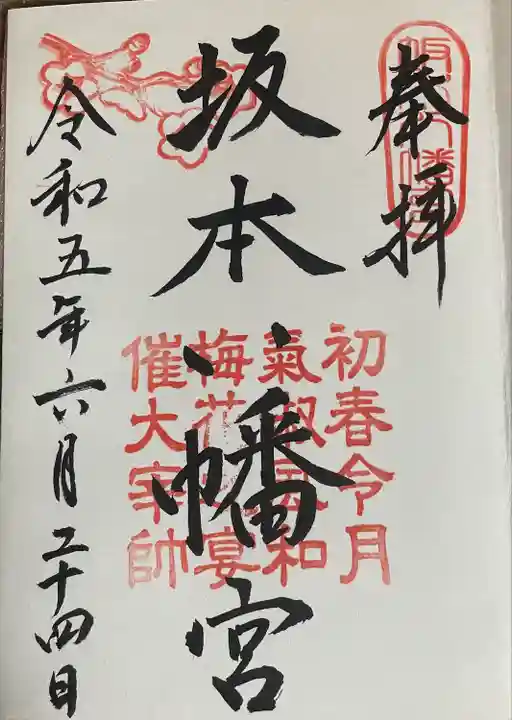 奉拝
坂本八幡宮
初春令月
氣淑風和
梅花の宴
催大宰帥
令和五年六月二十四日